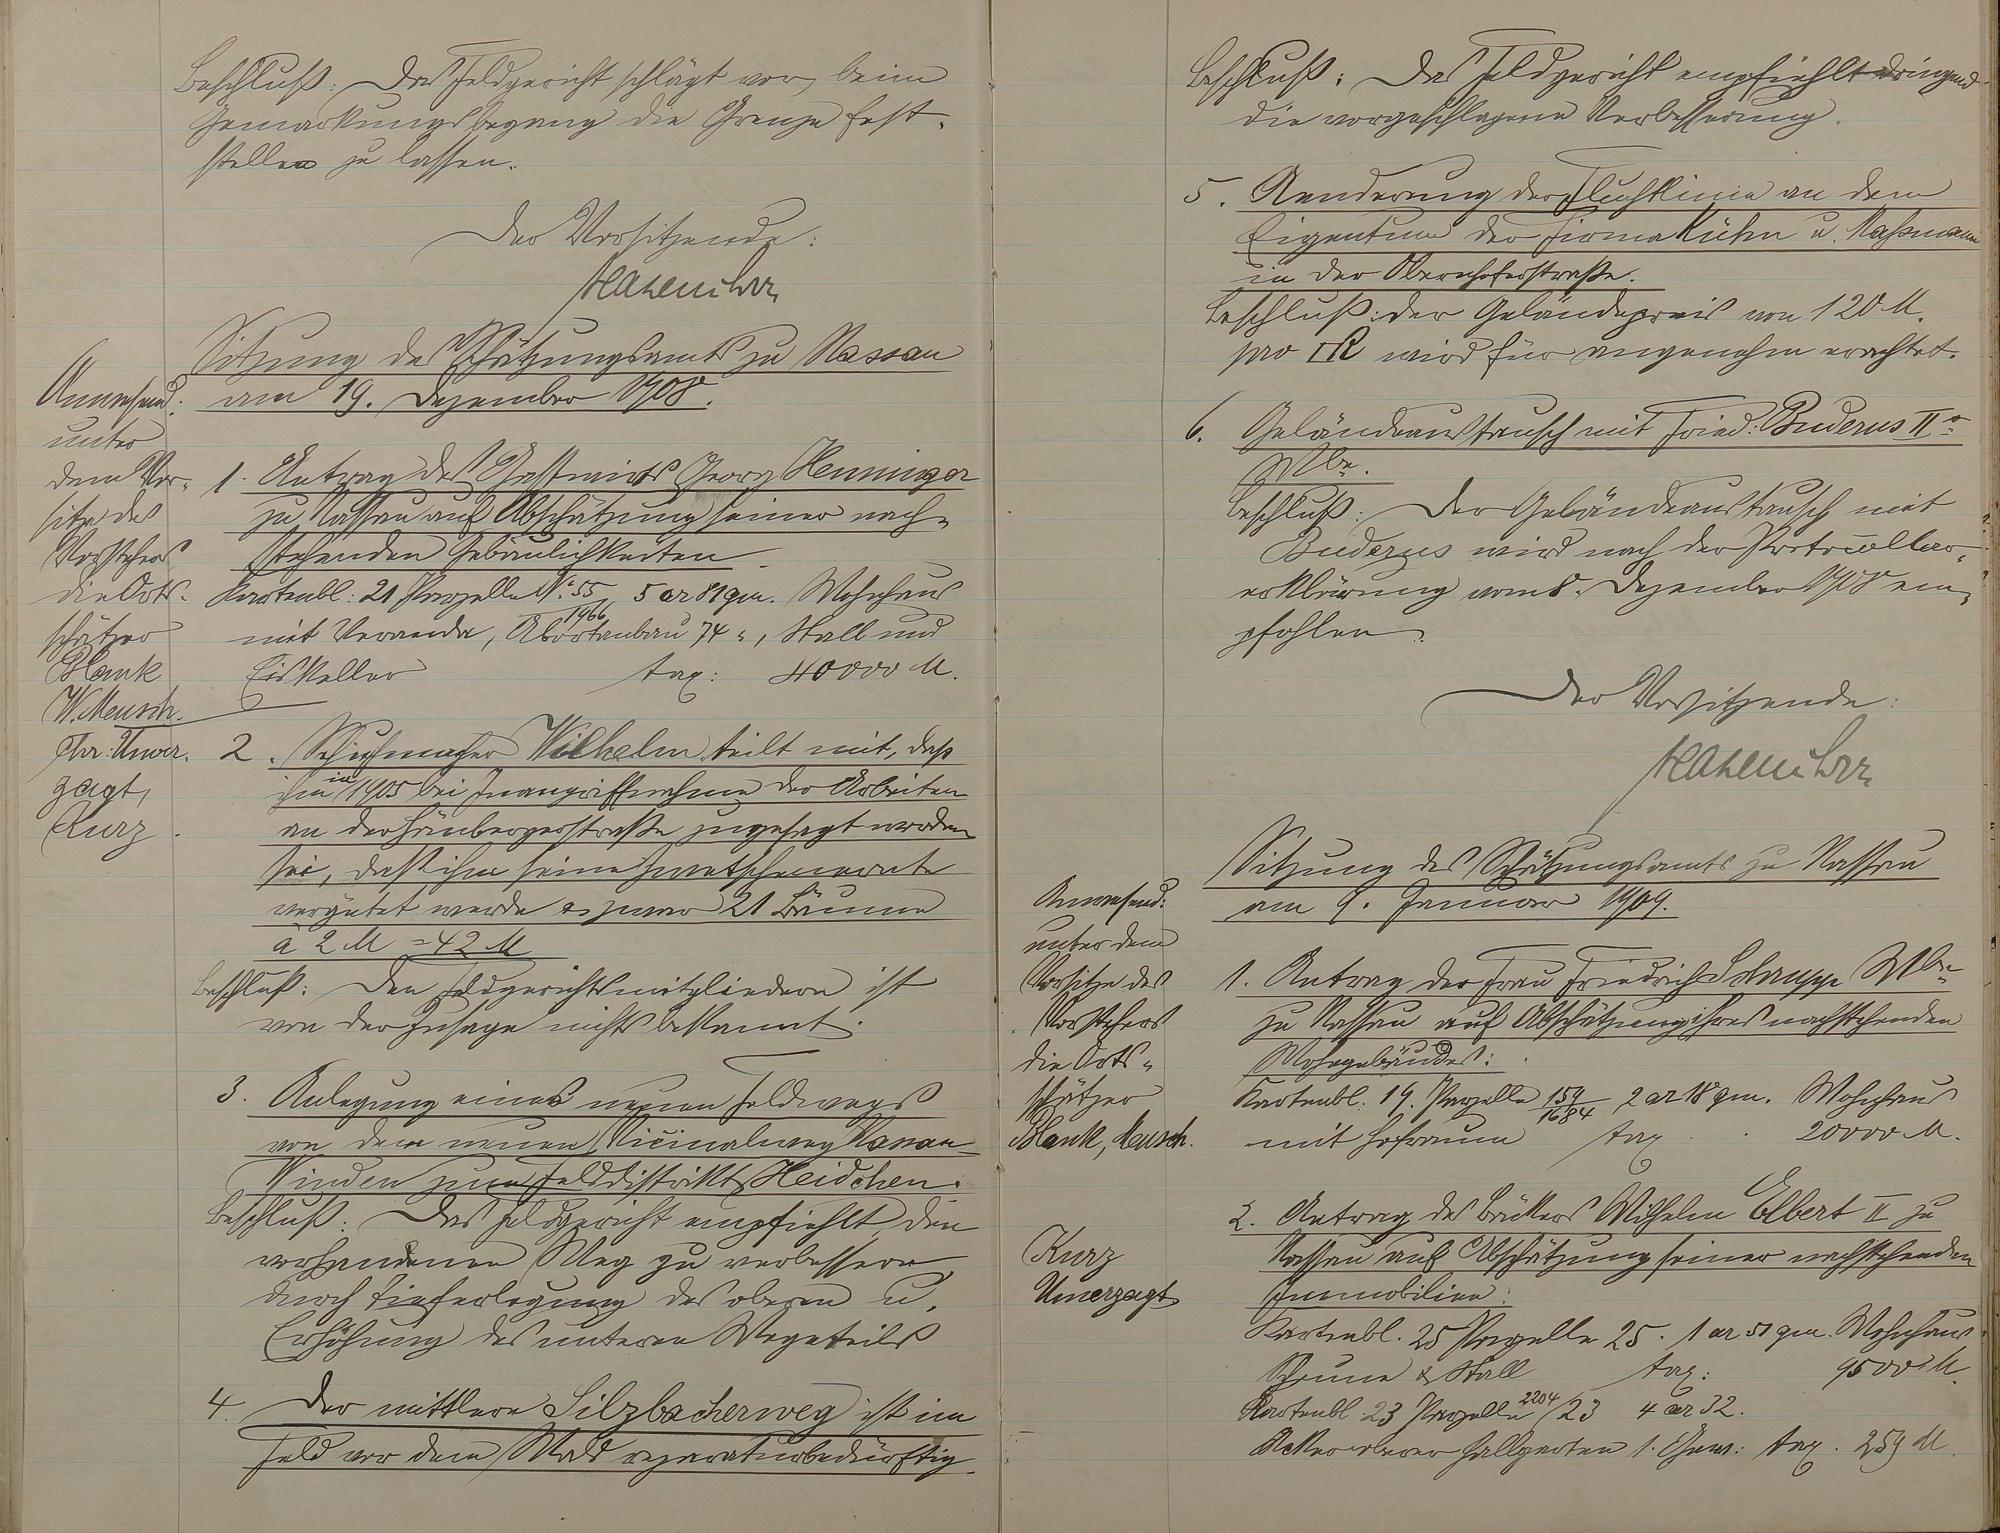 Beschluß: Das Feldgericht schlägt vor, beim
Gemarkungsbegang die Grenze fest-
stellen zu lassen.
Der Vorsitzende:
Sitzung des Schätzungsamts zu Nassau
am 19. Dezember 1908.
Anwesend:
unter
dem Vor-
sitze des
Vorstehers
die Orts-
schätzer
Blank
W. Meusch.
Chr: Unver-
zagt,
Kurz.
1. Antrag des Gastwirts Georg Henninger
zu Nassau auf Abschätzung seiner nach-
stehenden Gebäulichkeiten
Kartenbl: 21 Parzelle No 55 5 ar 81 qm. Wohnhaus
1966
mit Veranda, Abortanbau 74 ", Stall und
Eiskeller tax: 40000 M.
2. Schuhmacher Wilhelm teilt mit, daß
ihm in 1905 bei Inangriffnahme der Arbeiten
an der Hömbergerstraße zugesagt worden
sei, daß ihm seine Zwetschenernte
vergütet werde u zwar 21 Bäume
à 2 M = 42 M
Beschluß: Den Feldgerichtsmitgliedern ist
von der Zusage nichts bekannt.
3. Anlegung eines neuen Feldwegs
von dem neuen Vicinalweg Nassau-
Winden zum Felddistrikt Heidchen.
Beschluß: Das Feldgericht empfiehlt, den
vorhandenen Weg zu verbessern
durch Tieferlegung des oberen u.
Erhöhung des unteren Wegeteils
4. Der mittlere Silzbacherweg ist im
Feld vor dem Wald reparaturbedürftig.
Beschluß: Das Feldgericht empfiehlt dringend
die vorgeschlagene Verbesserung.
5. Aenderung der Fluchtlinie an dem
Eigentum der Firma Kühn u. Naßmann
in der Obernhoferstraße.
Beschluß: der Geländepreis von 120 M.
pro □R wird für angenehm erachtet.
6. Geländeaustausch mit Fried: Buderus IIr
Wwe.
Beschluß: Der Geländeaustausch mit
Buderus wird nach der Protocollar-
erklärung vom 8. Dezember 1908 em-
pfohlen.
Der Vorsitzende:
Sitzung des Schätzungsamts zu Nassau
am 9. Januar 1909.
Anwesend:
unter dem
Vorsitze des
Vorstehers
die Orts-
schätzer
Blank, Meusch.
Kurz
Unverzagt
1. Antrag der Frau Friedrich Schupp Wwe
zu Nassau auf Abschätzung ihres nachstehenden
Wohngebäudes:
Kartenbl: 19. Parzelle 159/1684 2 ar 18 qm. Wohnhaus
mit Hofraum tax 20000 M.
2. Antrag des Bäckers Wilhelm Elbert II zu
Nassau auf Abschätzung seiner nachstehenden
Immobilien:
Kartenbl. 25 Parzelle 25. 1 ar 51 qm. Wohnhaus
Scheune & Stall tax: 9500 M.
Kartenbl. 23 Parzelle 2204/23 4 ar 32.
Acker oberer Hallgarten 1. Gew: tax. 259 M